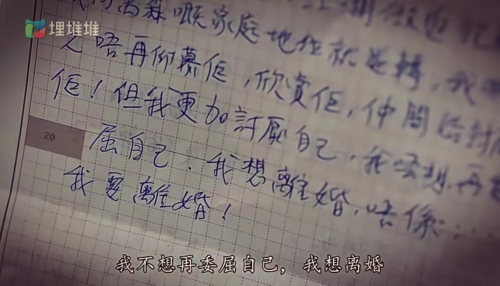 埋堆堆
嘅家庭地位就逆轉,我
唔再仰慕佢,欣賞佢,仲開始討
佢!但我更加討厭自己,我唔想再
20
屈自己,我想離婚,唔係……
我要離婚!
我不想再委屈自己,我想离婚